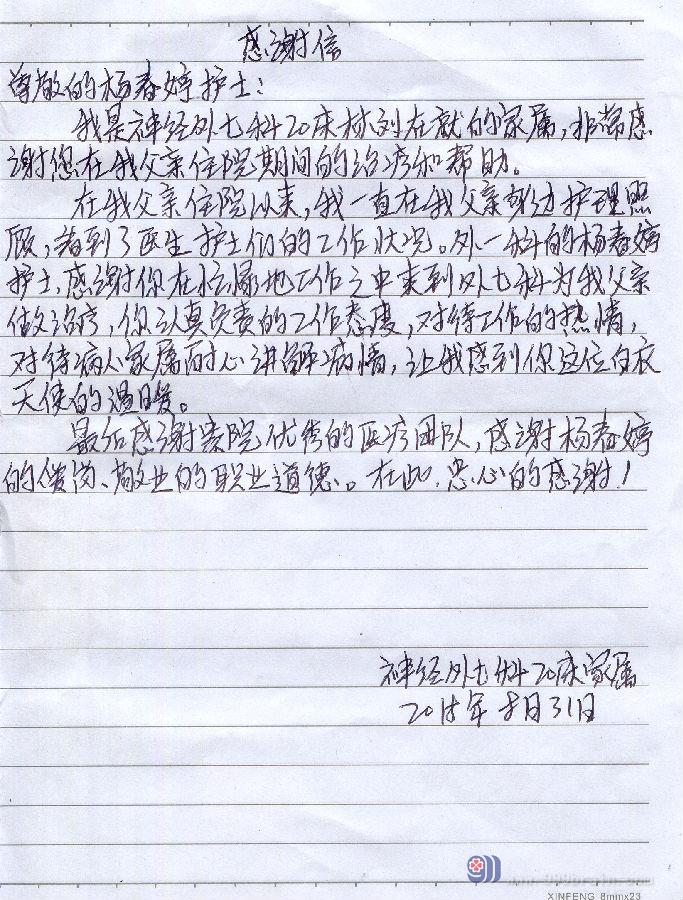 感谢信
尊敬的杨春婷护士：
我是神经外七科20床林列在就的家属，非常感
谢您在我父亲住院期间的治疗和帮助。
在我父亲住院以来，我一直在我父亲身边护理照
顾，看到了医生护士们的工作状况。外一科的杨春婷
护士，感谢你在忙碌地工作之中来到外七科为我父亲
做治疗，你认真负责的工作态度，对待工作的热情，
对待病人家属耐心讲解病情，让我感到你这位白衣
天使的温暖。
最后感谢贵院优秀的医疗团队，感谢杨春婷
的爱岗、敬业的职业道德。在此，忠心的感谢！
神经外七科20床家属
2018年8月31日
XINFENG 8mmx23